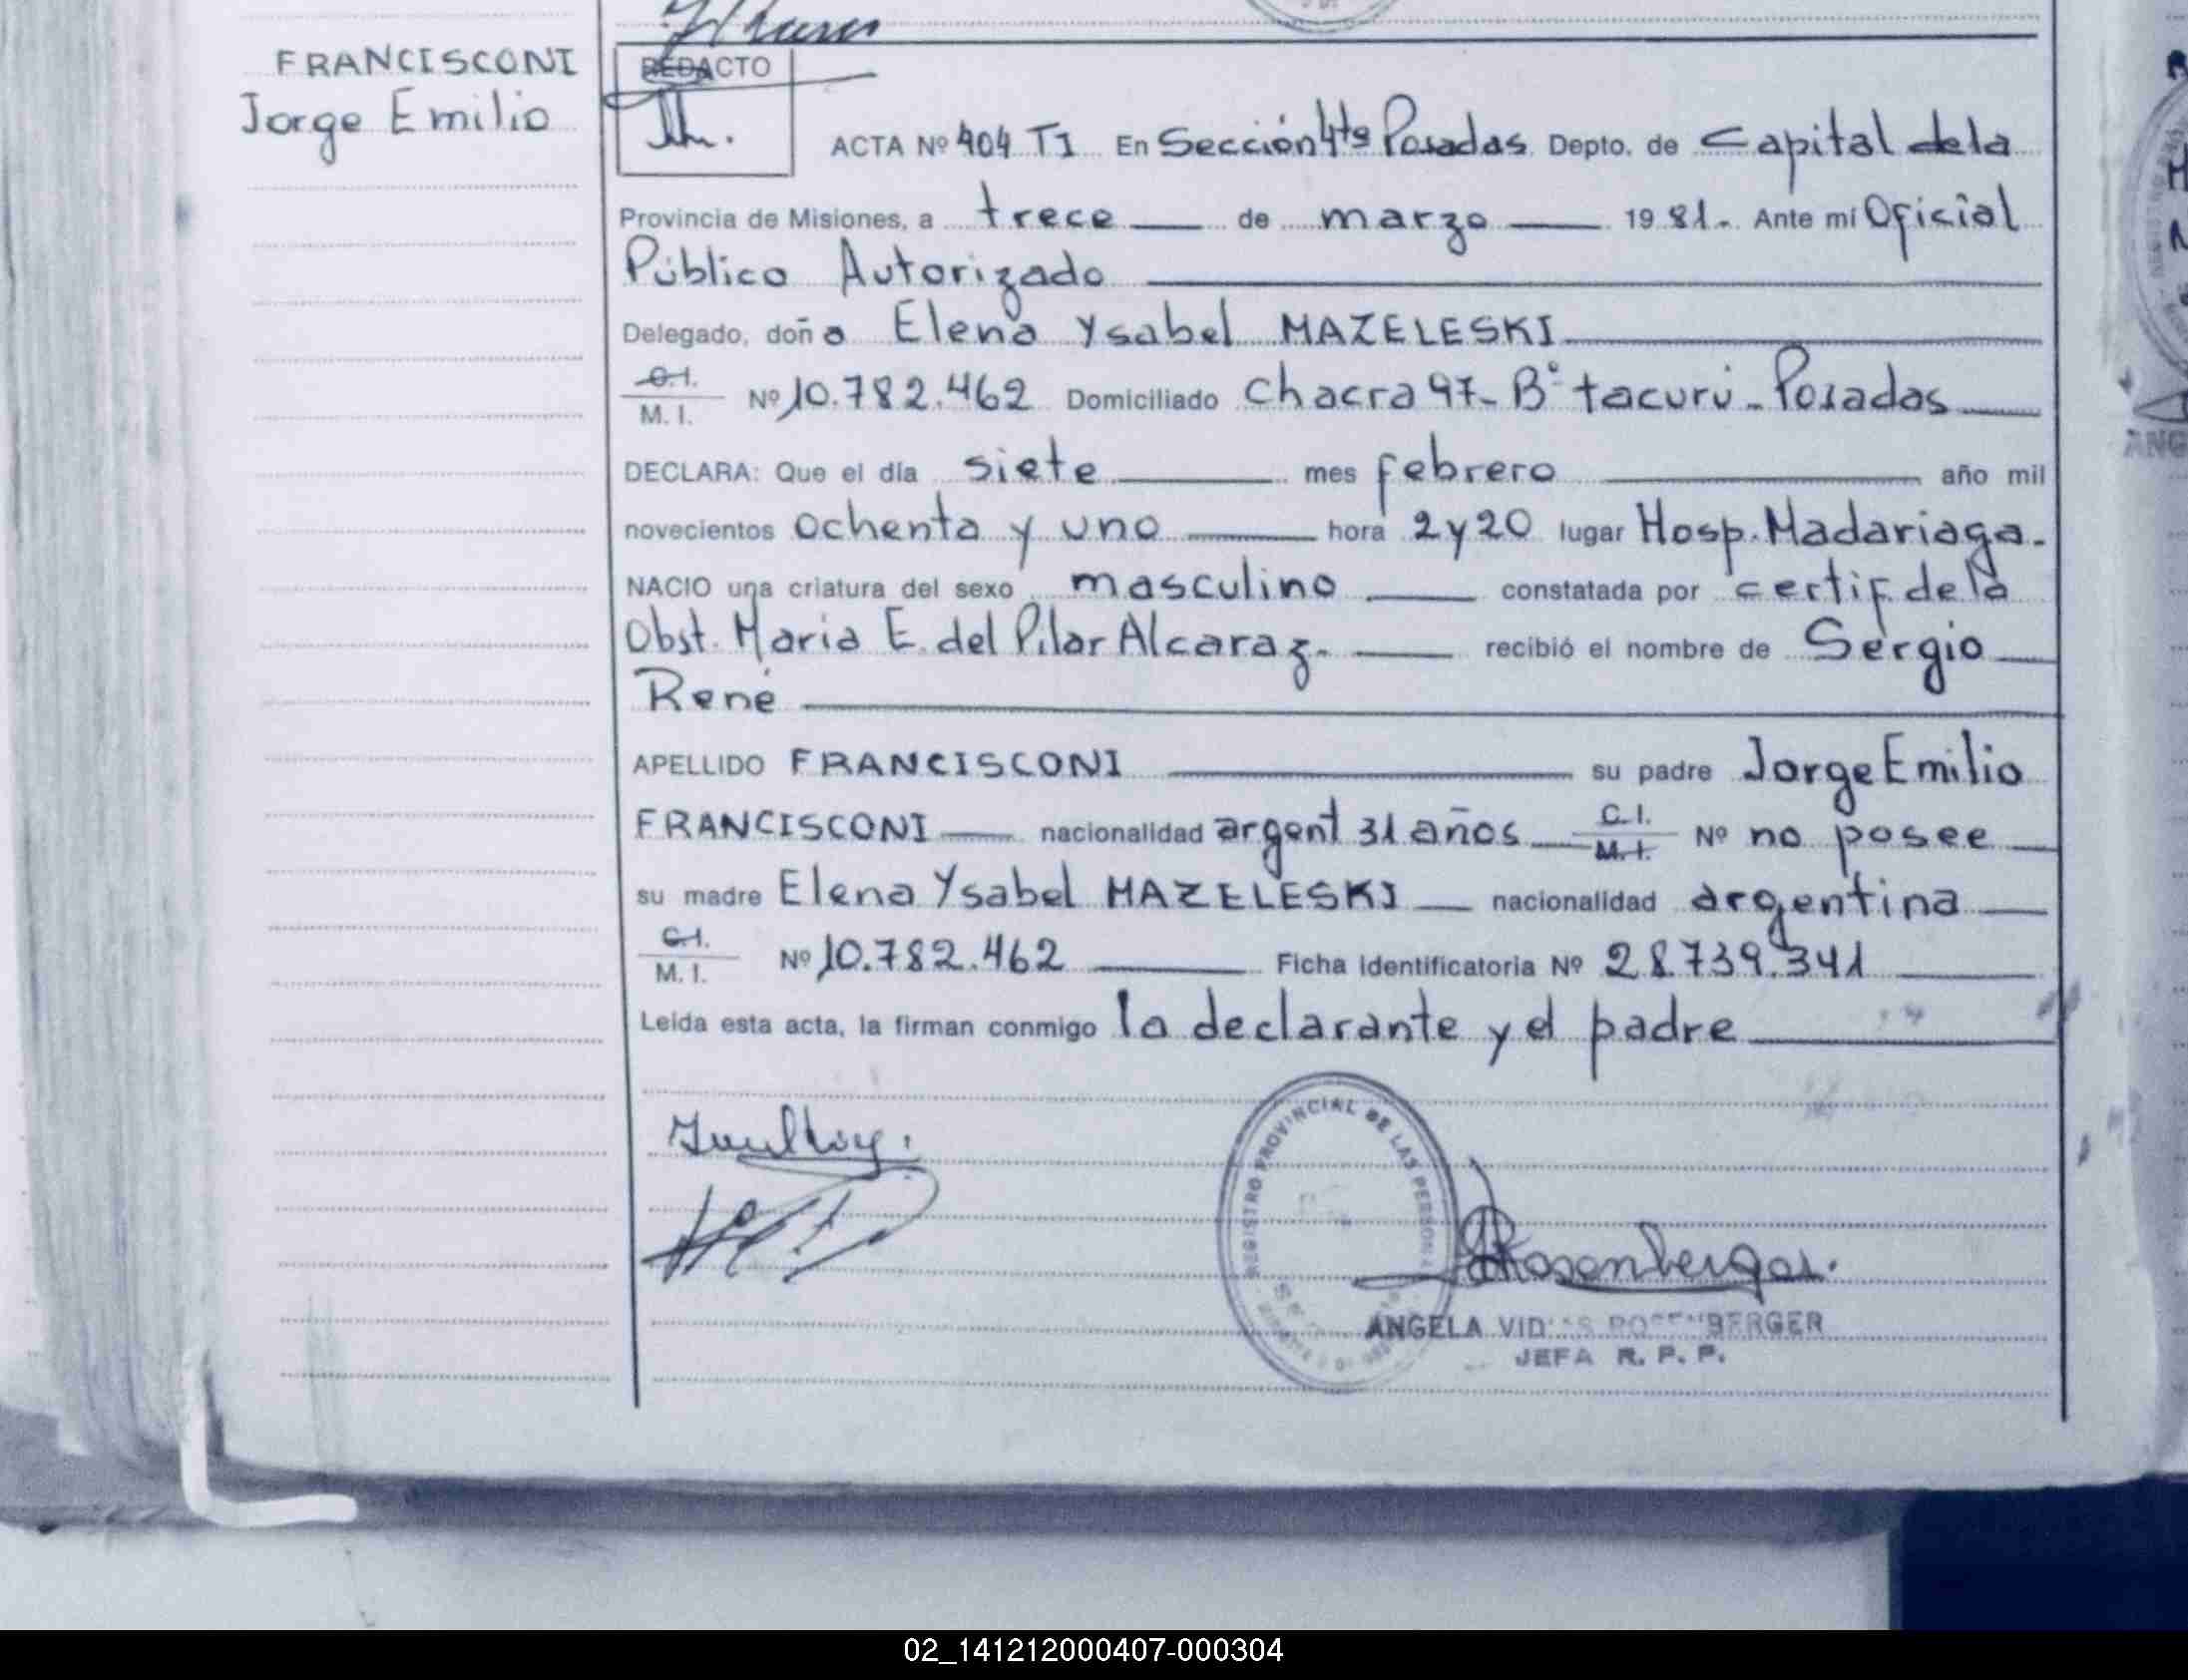 FRANCISCONI
Jorge Emilio
REDACTO
ACTA Nº 404 TI En Sección 4ta Posadas Depto. de Capital de la
Provincia de Misiones, a trece de marzo 1981.- Ante mi Oficial
Público Autorizado
Delegado, doña Elena Ysabel MAZELESKI
C.I. M.I. Nº 10.782.462 Domiciliado Chacra 97- Bº tacurú - Posadas
DECLARA: Que el día siete mes febrero año mil
novecientos ochenta y uno hora 2 y 20 lugar Hosp. Madariaga.-
NACIO una criatura del sexo masculino constatada por certif. de la
Obst. María E. del Pilar Alcaraz.- recibió el nombre de Sergio
René
APELLIDO FRANCISCONI su padre Jorge Emilio
FRANCISCONI nacionalidad argent 31 años C.I. M.I. Nº no posee
su madre Elena Ysabel MAZELESKI nacionalidad argentina
C.I. M.I. Nº 10.782.462 Ficha identificatoria Nº 28.739.341
Leida esta acta, la firman conmigo la declarante y el padre
REGISTRO PROVINCIAL DE LAS PERSONAS
ANGELA ROSENBERGER
JEFA R. P. P.
02_141212000407-000304